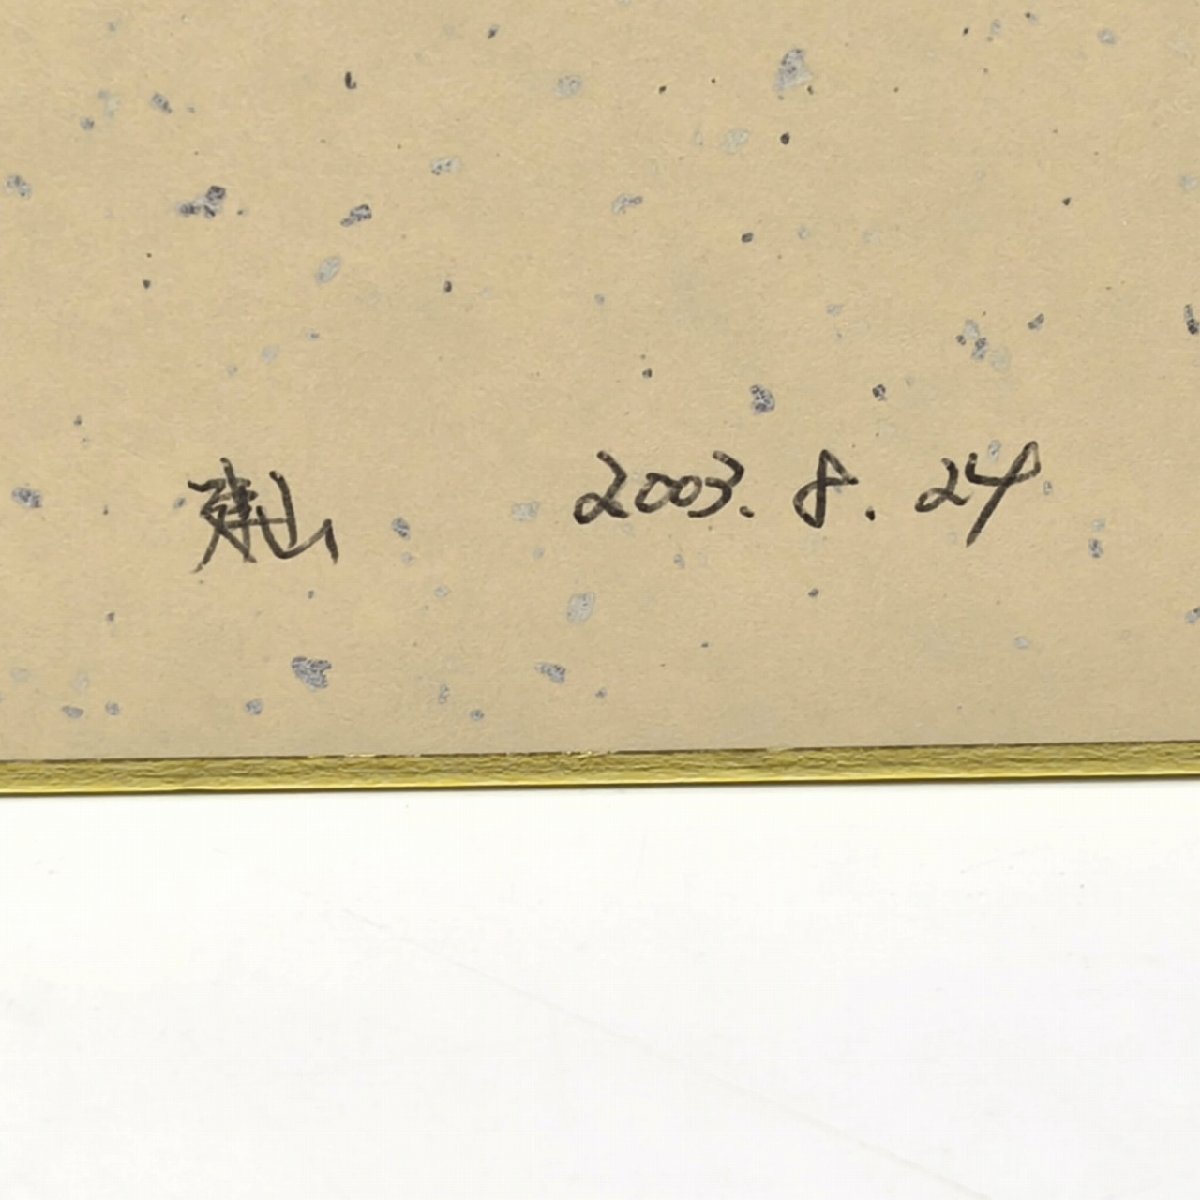 建山 2003.8.24